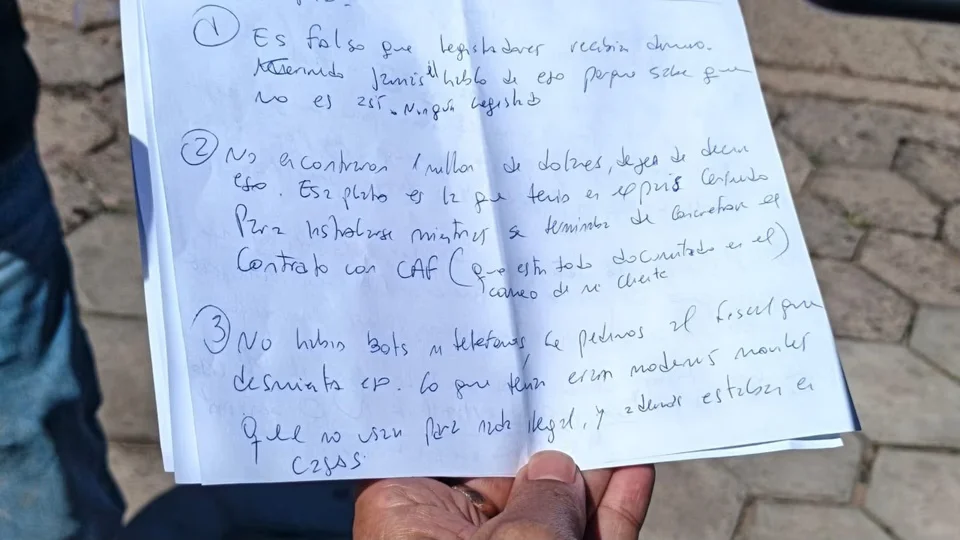 ① Es falso que legisladores recibían dinero.
jamás él habló de eso porque sabe que
no es así. Ningún legislad
② No encontraron 1 millón de dolares, dejen de decir
eso. Esa plata es la que tenía en el país
Para instalarse mientras se terminaba de concretar el
Contrato con CAF (que esta todo documentado en el)
correo de mi cliente
③ No había Bots ni telefonos Le pedimos al fiscal que
desmienta eso. Lo que tenía eran modems moviles
Que no usan para nada ilegal, y ademas estaban en
cajas